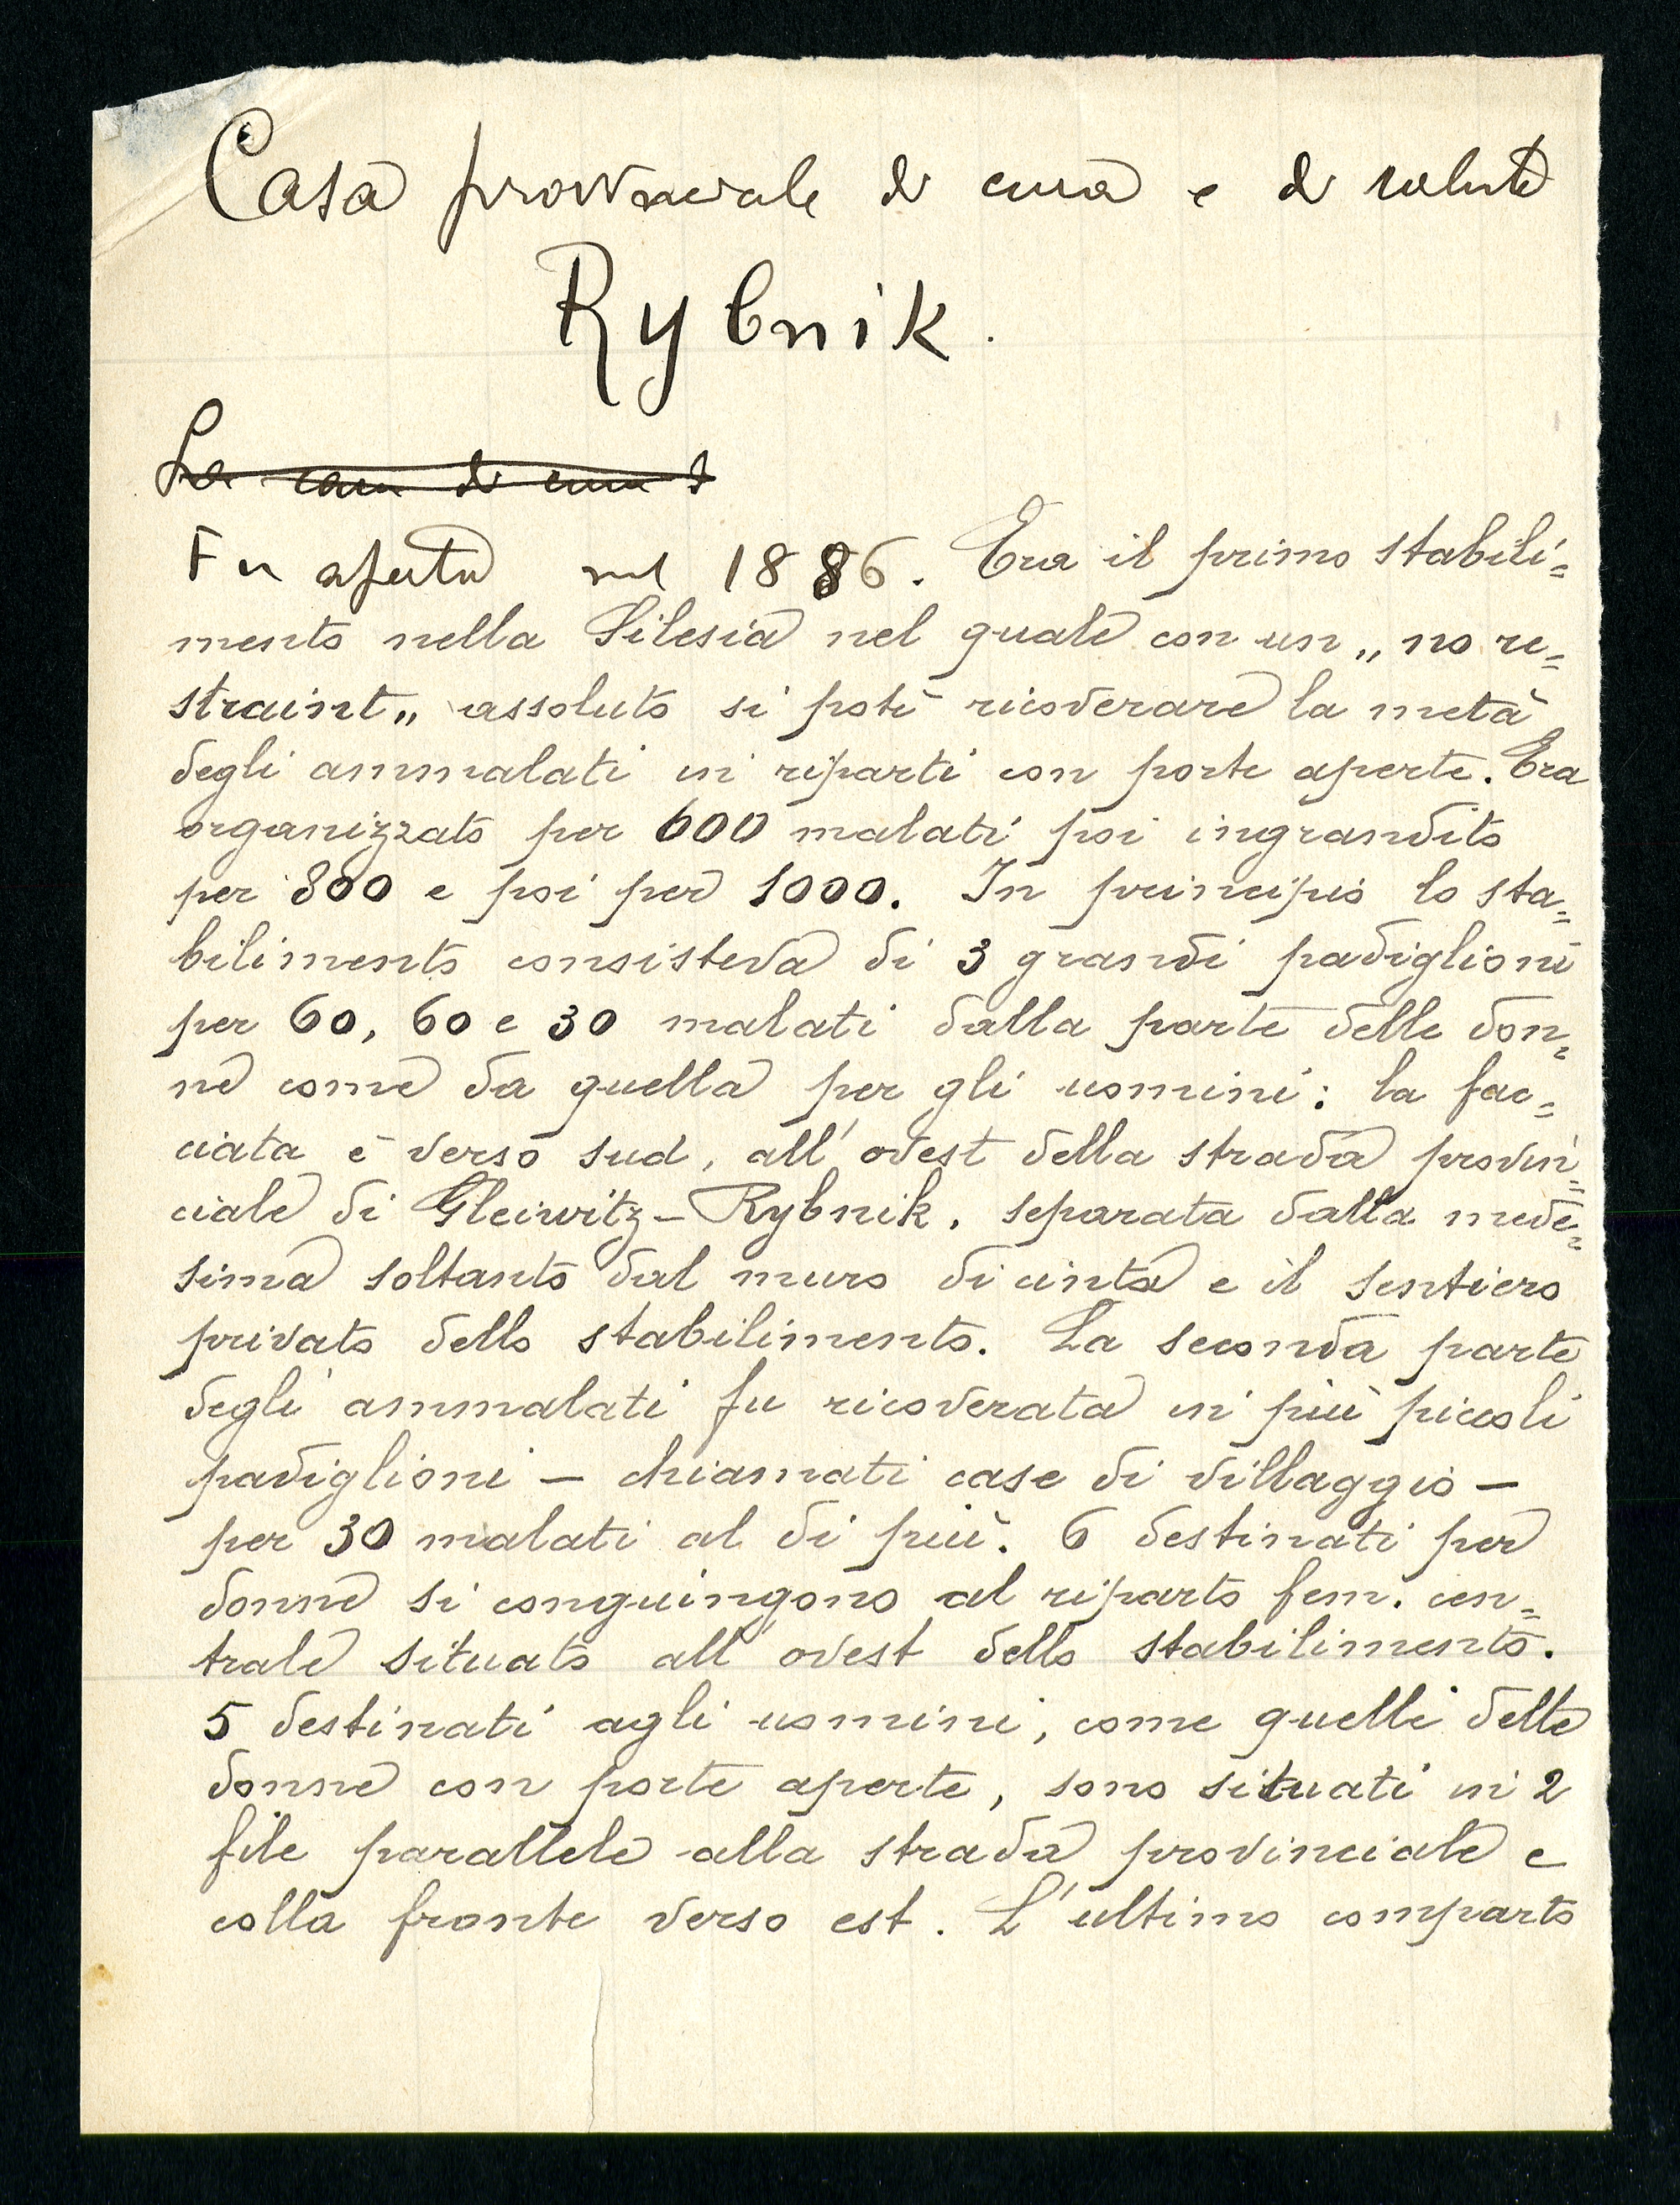 Casa provinciale di cura e di salute
Rybnik.
La casa di cura e
Fu aperta nel 1886. Era il primo stabili=
mento nella Silesia nel quale con un „no re=
straint„ assoluto si potè ricoverare la metà
degli ammalati in riparti con porte aperte. Era
organizzato per 600 malati poi ingrandito
per 800 e poi per 1000. In principio lo sta=
bilimento consisteva di 3 grandi padiglioni
per 60, 60 e 30 malati dalla parte delle don=
ne come da quella per gli uomini: la fac=
ciata è verso sud, all'ovest della strada provin=
ciale di Gleiwitz-Rybnik, separata dalla mede=
sima soltanto dal muro di cinta e il sentiero
privato dello stabilimento. La seconda parte
degli ammalati fu ricoverata in più piccoli
padiglioni — chiamati case di villaggio —
per 30 malati al di più. 6 destinati per
donne si conguingono al riparto fem. cen=
trale situato all'ovest dello stabilimento.
5 destinati agli uomini, come quelli delle
donne con porte aperte, sono situati in 2
file parallele alla strada provinciale e
colla fronte verso est. L'ultimo comparto